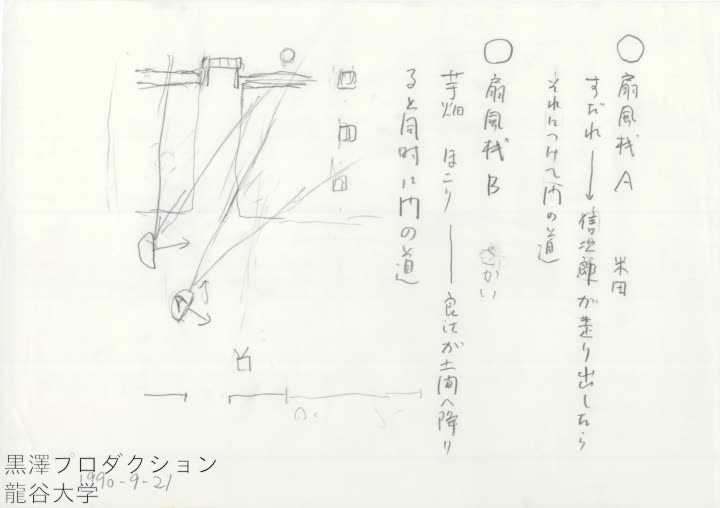 ○ 扇風機A 米田
すだれ → 信次郎が走り出したら
それにつけて内の道
○ 扇風機B さかい
芋畑 ほこり — 良江が土間へ降り
ると同時に内の道
A
1990-9-21
黒澤プロダクション
龍谷大学